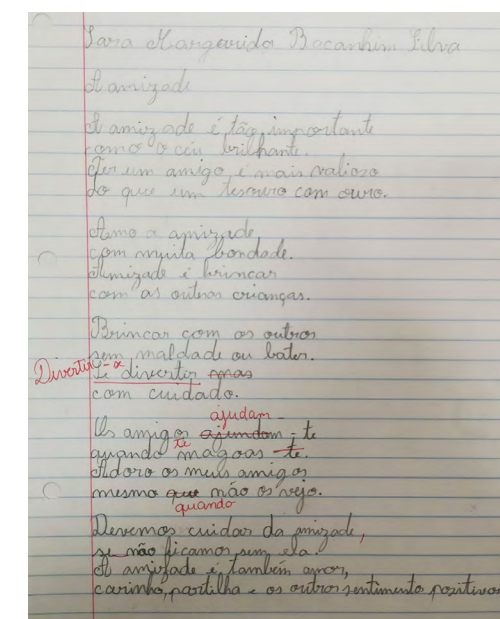 Sara Margarida Bacanhim Silva
A amizade
A amizade é tão importante
como o céu brilhante.
Ter um amigo é mais valioso
do que um tesouro com ouro.
Amo a amizade,
com muita bondade.
Amizade é brincar
com as outras crianças.
Brincar com os outros
sem maldade ou bater.
Divertir-se
É divertir mas
com cuidado.
ajudam-
Os amigos ajundam-te
te
quando magoas te.
Adoro os meus amigos
mesmo que não os vejo.
quando
Devemos cuidar da amizade,
se não ficamos sem ela.
A amizade é também amor,
carinho, partilha e os outros sentimento positivos